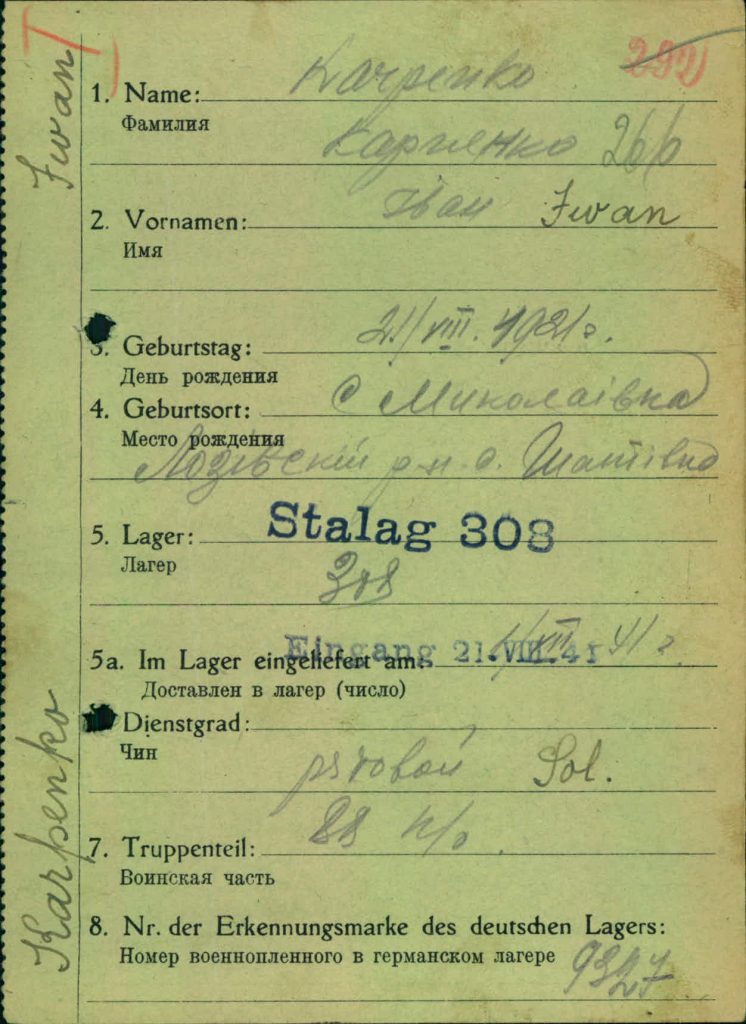 Iwan
Karpenko
292
1. Name: Karpenko
Фамилия
Карпенко 266
2. Vornamen: Іван Iwan
Имя
3. Geburtstag: 21/VIII. 1921 г.
День рождения
4. Geburtsort: С Миколаівка
Место рождения
Лозівскій р-н с.
5. Lager: Stalag 308
Лагер
308
5a. Im Lager eingeliefert am: Eingang 21. VIII. 41 41 г.
Доставлен в лагер (число)
Dienstgrad:
Чин
рядовой Sol.
7. Truppenteil: 88
Воинская часть
8. Nr. der Erkennungsmarke des deutschen Lagers:
Номер военнопленного в германском лагере